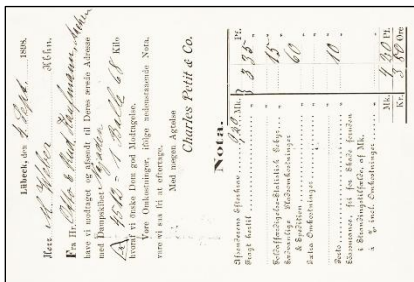 Lübeck, den 4 Sept. 1898.
Herr M. Weber Kbhn.
Fra Hr. Otto &
have vi modtaget og afsendt til Deres ærede Adresse
med Dampskibet
4512 – 1 Balle 68 Kilo
hvoraf vi ønske Dem god Modtagelse.
Vore Omkostninger, ifølge nedenstaaende Nota,
vare vi saa fri at eftertage.
Med megen Agtelse
Charles Petit & Co.
Nota.
Mk. Pf.
Afsenderens Efterkrav
Fragt hertil 3 35
Toldaffærdigelse-Statistik Gebyr 15
Sædvanlige Platzomkostninger
& Spedition 60
Extra Omkostninger
Porto 10
Assurance, fri for Skade
i Strandingstilfælde, af Mk.
incl. Omkostninger
Mk. 4 20 Pf.
Kr. 3 80 Øre